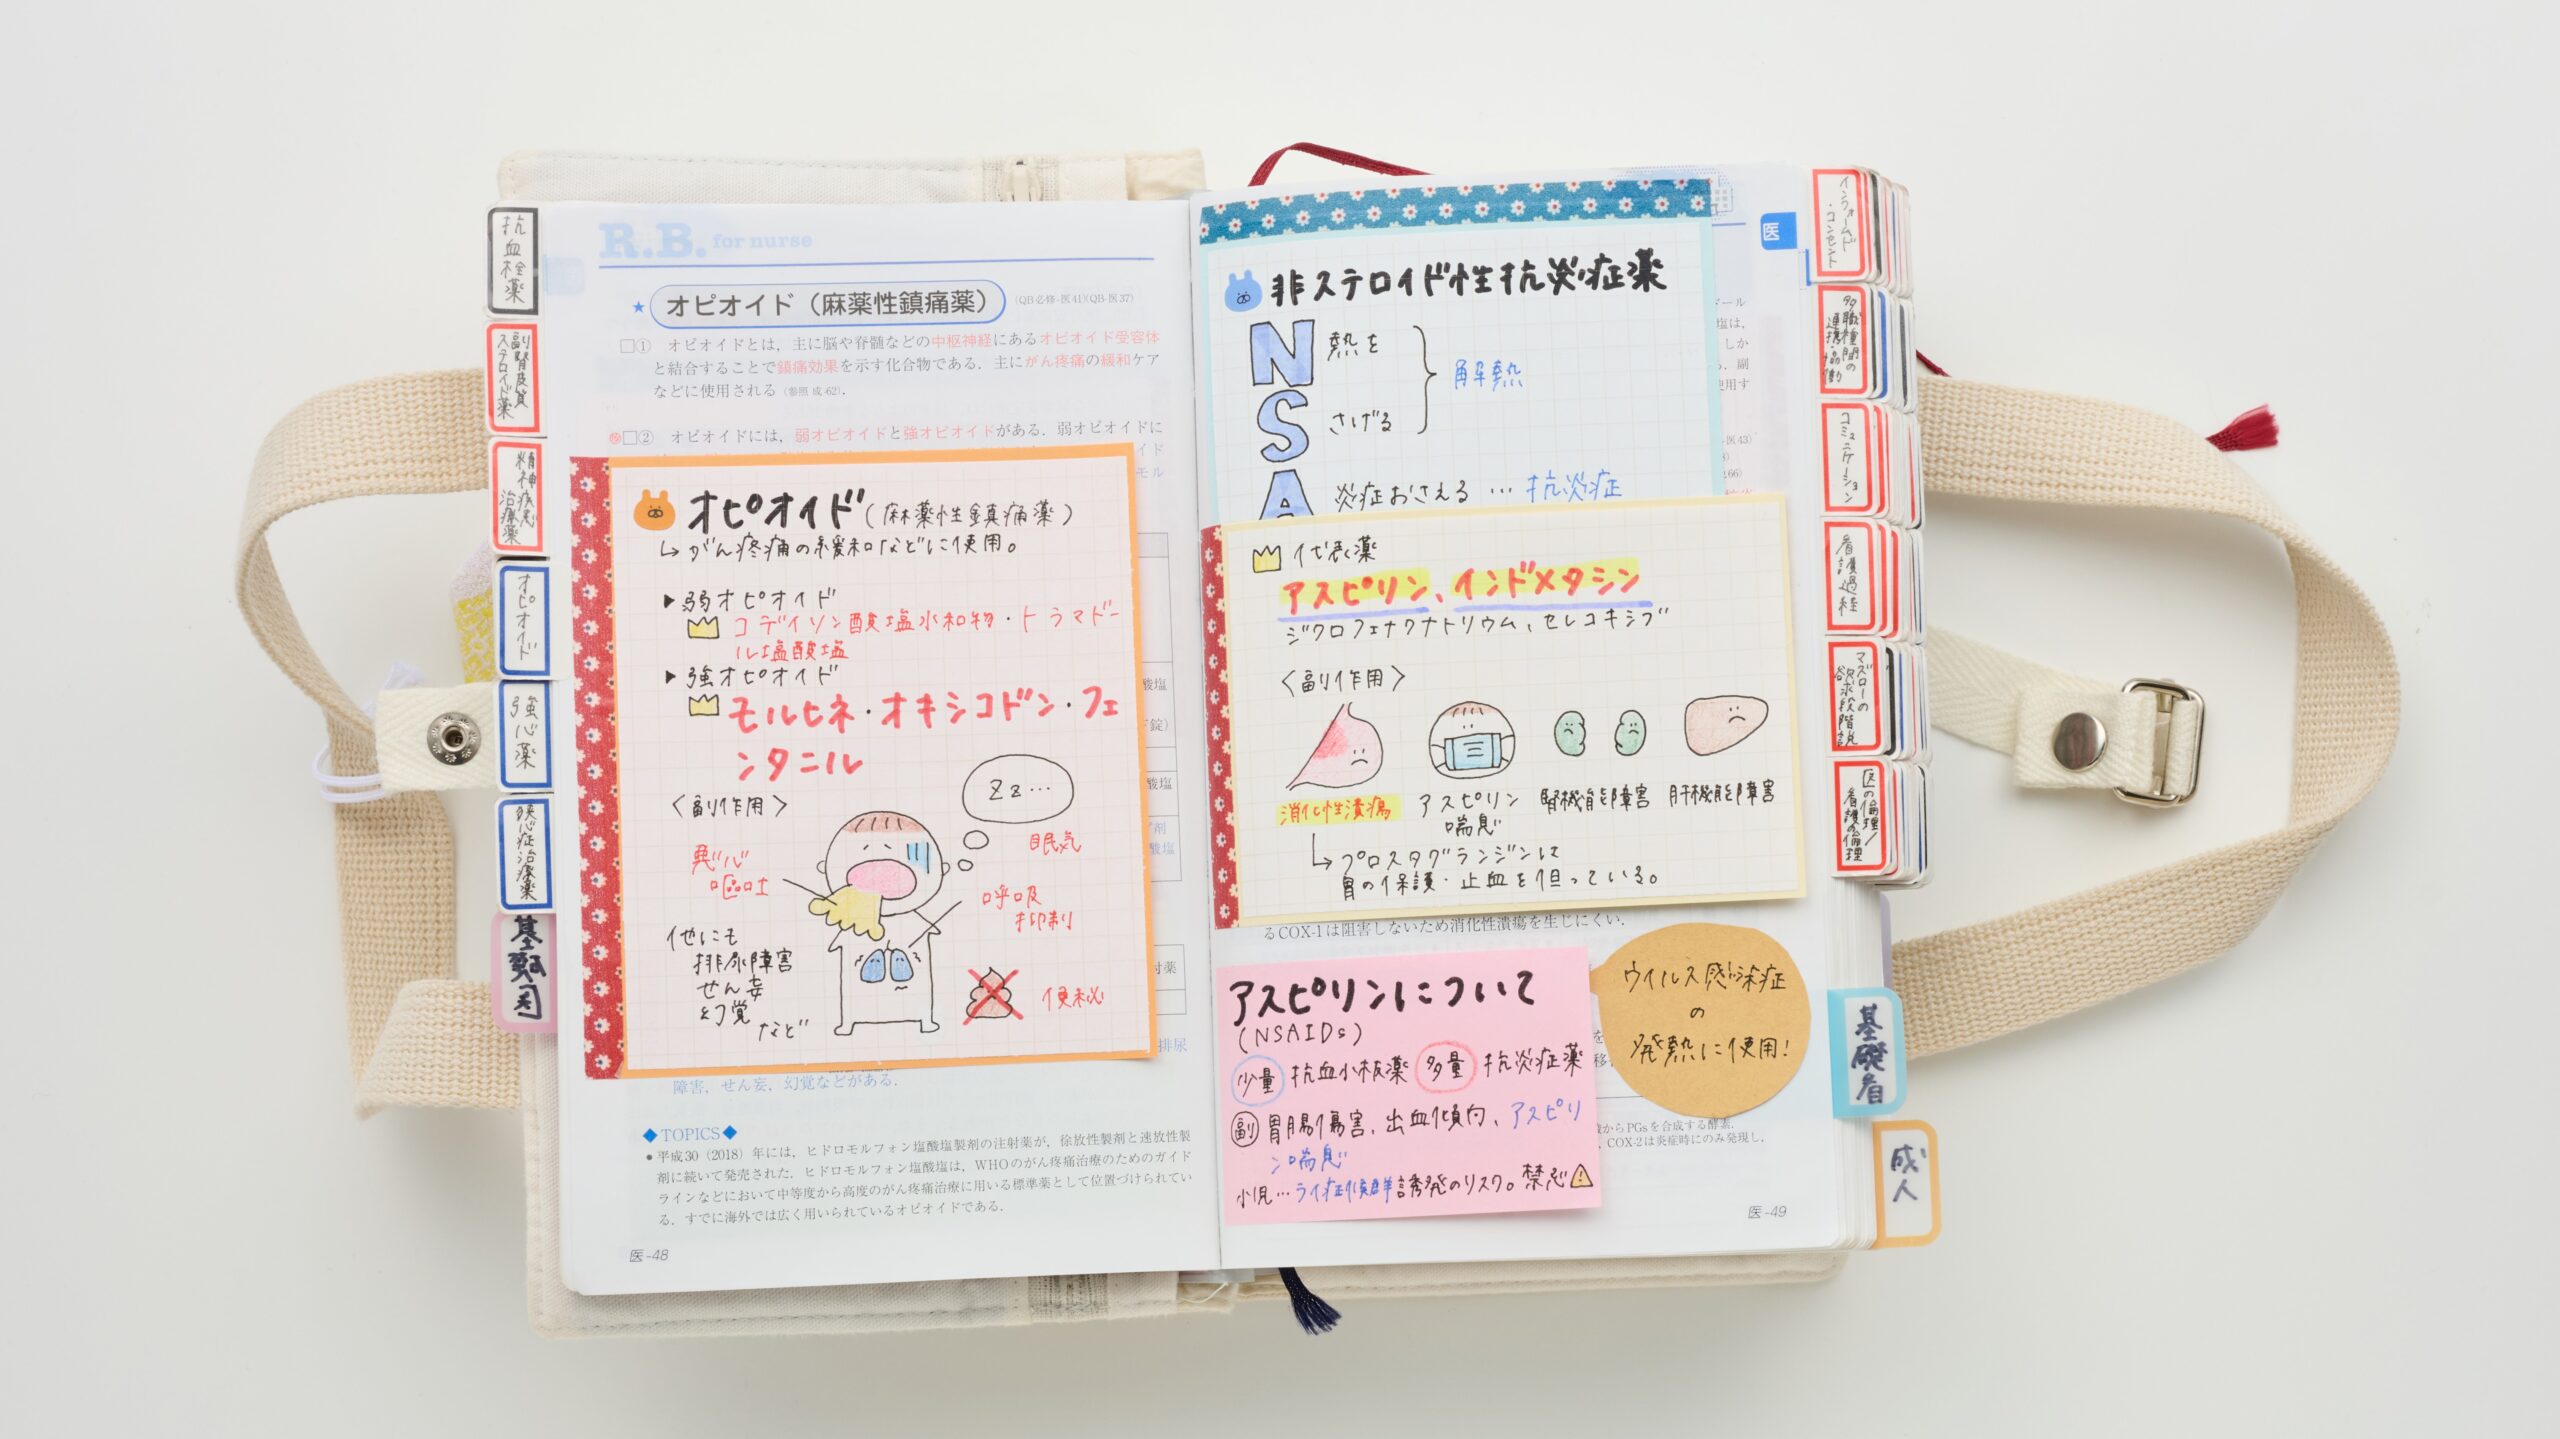 抗血栓薬
副腎皮質
ステロイド薬
精神疾患
治療薬
オピオイド
強心薬
狭心症治療薬
R.B. for nurse
★ オピオイド（麻薬性鎮痛薬）（QB必修-医41）（QB-医37）
□① オピオイドとは，主に脳や脊髄などの中枢神経にあるオピオイド受容体
と結合することで鎮痛効果を示す化合物である．主にがん疼痛の緩和ケア
などに使用される（参照 成-62）．
□② オピオイドには，弱オピオイドと強オピオイドがある．弱オピオイドに
オピオイド(麻薬性鎮痛薬)
↳がん疼痛の緩和などに使用。
▶弱オピオイド
コデインリン酸塩水和物・トラマドー
ル塩酸塩
▶強オピオイド
モルヒネ・オキシコドン・フェ
ンタニル
〈副作用〉
Zz…
眠気
悪心
嘔吐
呼吸
抑制
他にも
排尿障害
せん妄
幻覚
など
便秘
障害，せん妄，幻覚などがある．
◆TOPICS◆
●平成30（2018）年には，ヒドロモルフォン塩酸塩製剤の注射薬が，徐放性製剤と速放性製
剤に続いて発売された．ヒドロモルフォン塩酸塩は，WHOのがん疼痛治療のためのガイド
ラインなどにおいて中等度から高度のがん疼痛治療に用いる標準薬として位置づけられてい
る．すでに海外では広く用いられているオピオイドである．
医-48
医
非ステロイド性抗炎症薬
N 熱を
S さげる
解熱
A 炎症おさえる…抗炎症
代表薬
アスピリン、インドメタシン
ジクロフェナクナトリウム、セレコキシブ
〈副作用〉
消化性潰瘍
アスピリン
喘息
腎機能障害
肝機能障害
↳プロスタグランジンは
胃の保護・止血を担っている。
るCOX-1は阻害しないため消化性潰瘍を生じにくい．
アスピリンについて
(NSAIDs)
少量 抗血小板薬 多量 抗炎症薬
副 胃腸傷害、出血傾向、アスピリ
ン喘息
小児…ライ症候群誘発のリスク。禁忌
ウイルス感染症
の
発熱に使用!
からPGsを合成する酵素．
COX-2は炎症時にのみ発現し，
医-49
インフォームド
・コンセント
多職種間の
連携・協働
コミュニケーション
看護過程
マズローの
欲求段階説
医の倫理/
看護の倫理
基礎看
成人